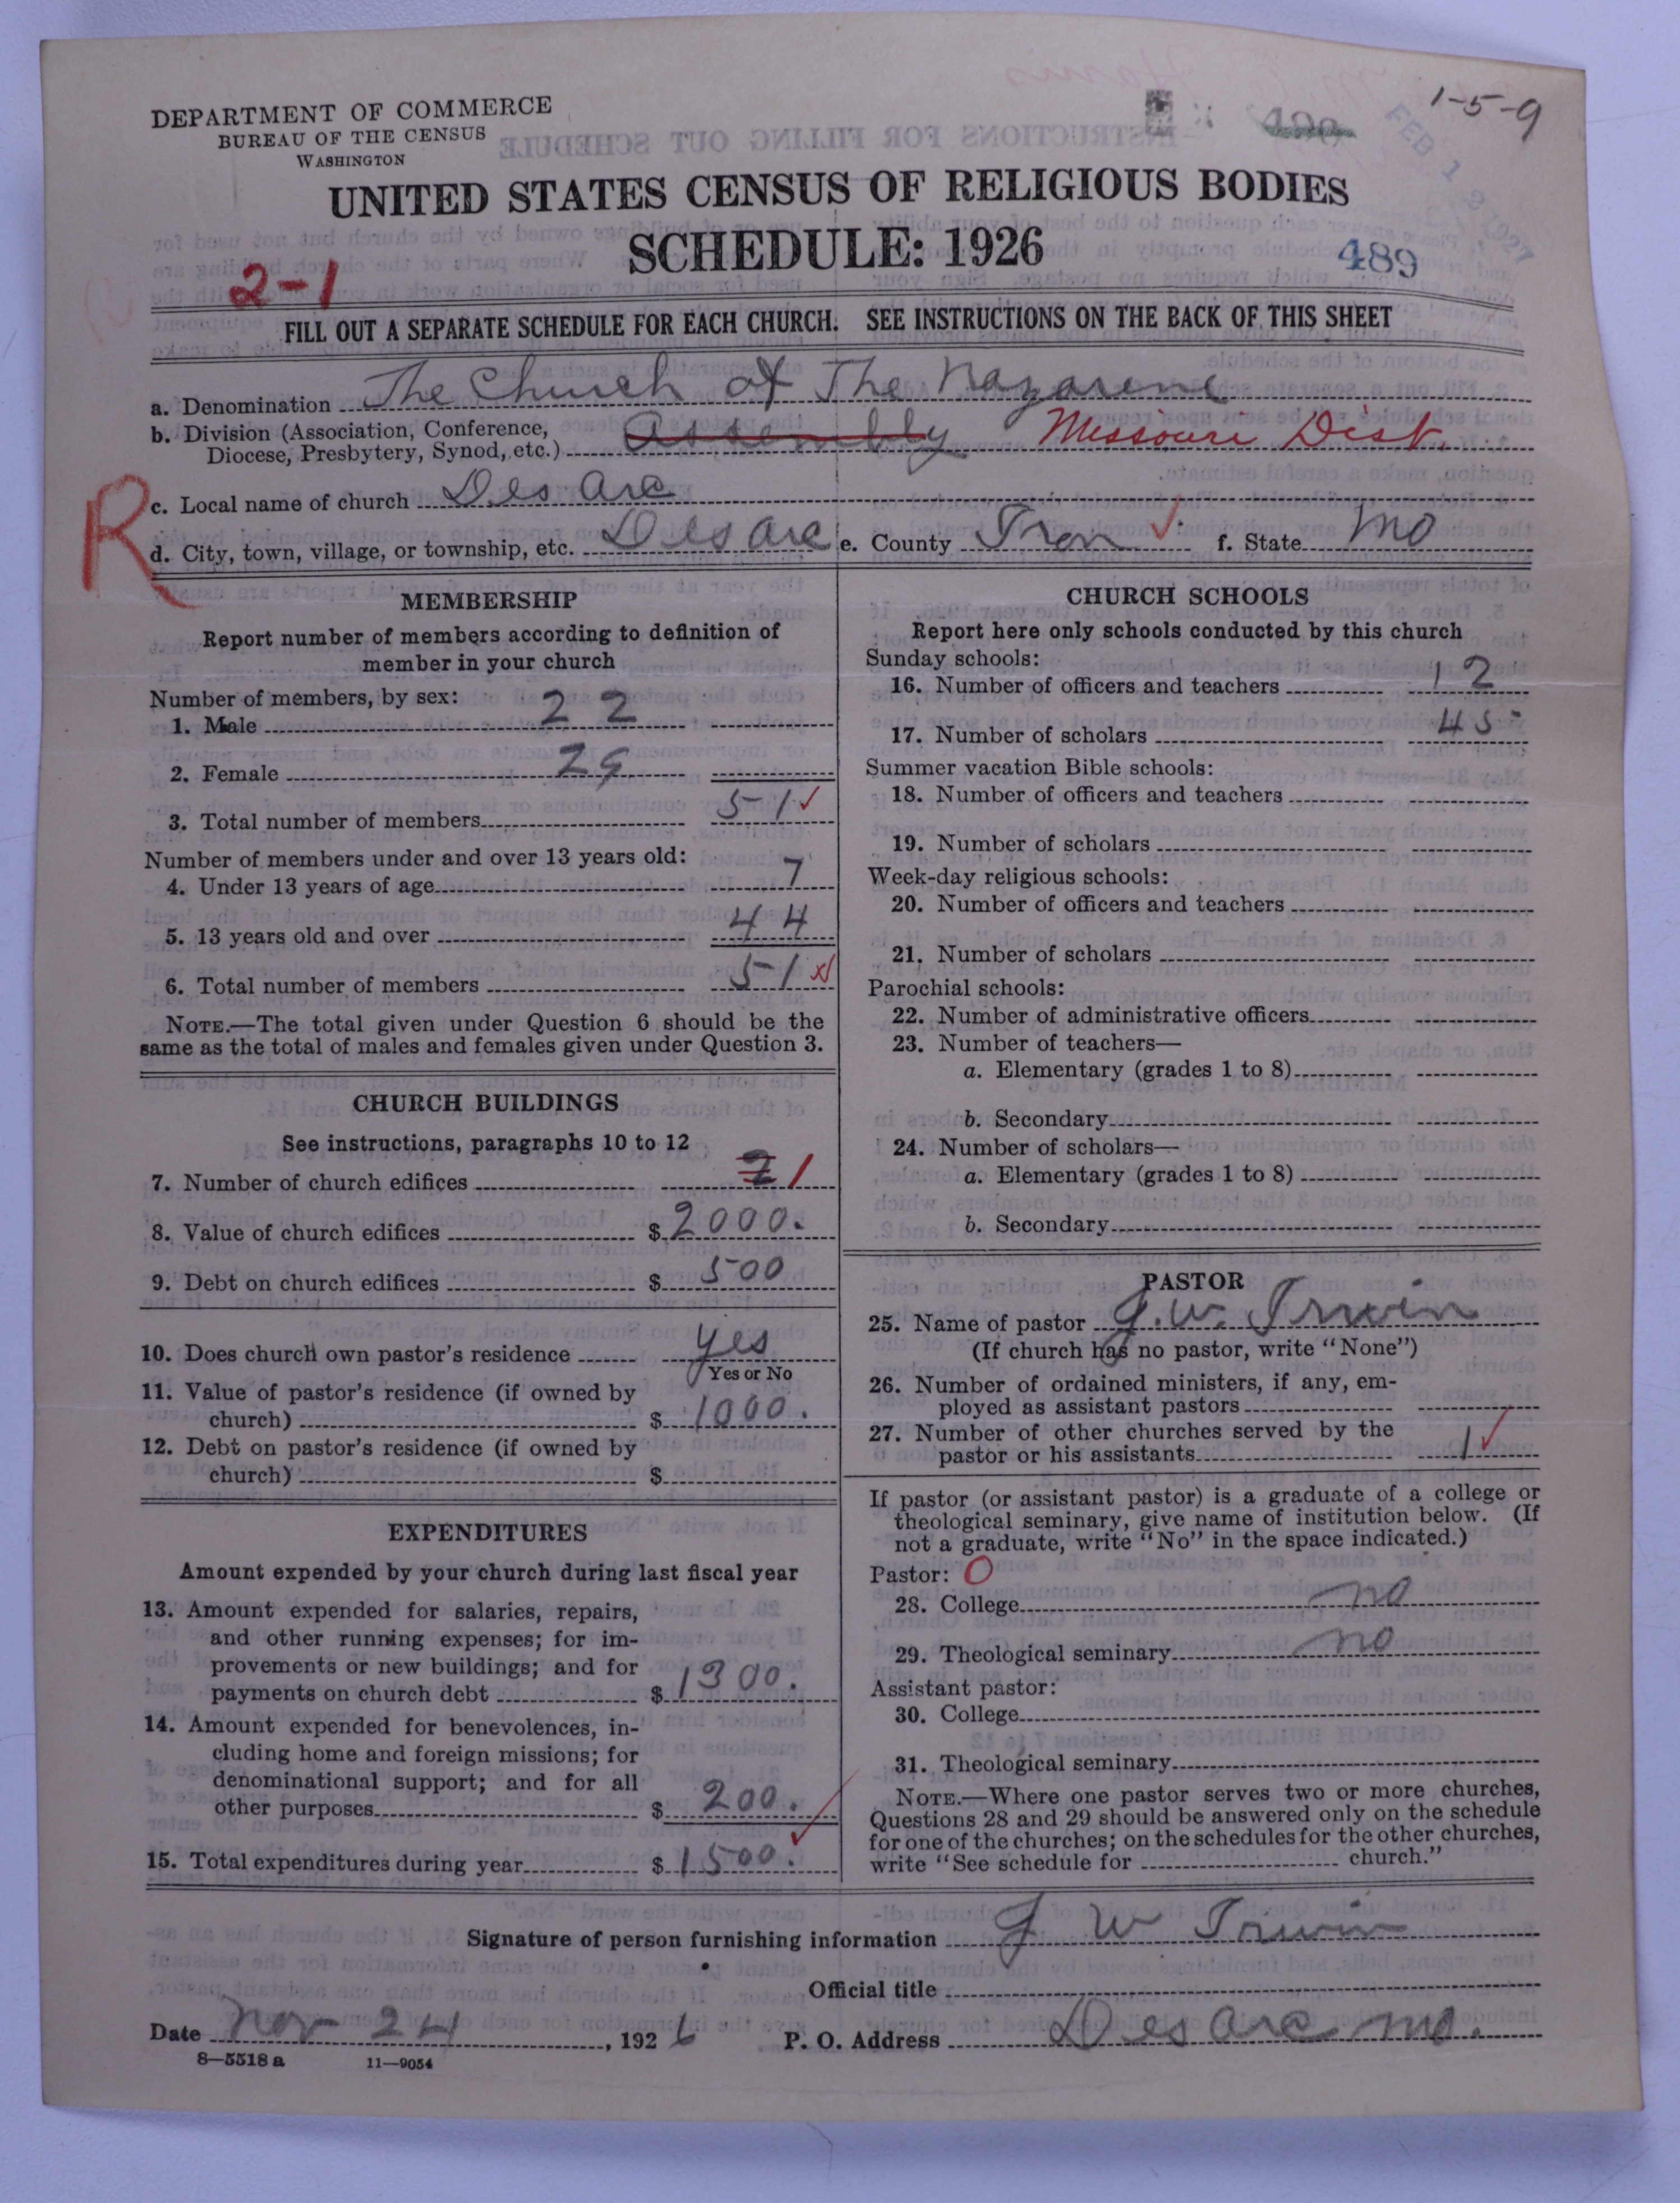 1-5-9
DEPARTMENT OF COMMERCE
BUREAU OF THE CENSUS
WASHINGTON
FEB 1 1927
UNITED STATES CENSUS OF RELIGIOUS BODIES
SCHEDULE: 1926
489
2-1
FILL OUT A SEPARATE SCHEDULE FOR EACH CHURCH. SEE INSTRUCTIONS ON THE BACK OF THIS SHEET
a. Denomination The Church of The Nazarene
b. Division (Association, Conference,
Diocese, Presbytery, Synod, etc.) Assembly Missouri Dist.
R
c. Local name of church Des Arc
d. City, town, village, or township, etc. Des Arc e. County Iron f. State Mo
MEMBERSHIP
Report number of members according to definition of
member in your church
Number of members, by sex:
1. Male 22
2. Female 29
3. Total number of members 51
Number of members under and over 13 years old:
4. Under 13 years of age 7
5. 13 years old and over 44
6. Total number of members 51
NOTE.—The total given under Question 6 should be the
same as the total of males and females given under Question 3.
CHURCH BUILDINGS
See instructions, paragraphs 10 to 12
7. Number of church edifices 2 1
8. Value of church edifices $ 2000.
9. Debt on church edifices $ 500
10. Does church own pastor's residence yes
Yes or No
11. Value of pastor's residence (if owned by
church) $ 1000.
12. Debt on pastor's residence (if owned by
church) $
EXPENDITURES
Amount expended by your church during last fiscal year
13. Amount expended for salaries, repairs,
and other running expenses; for im-
provements or new buildings; and for
payments on church debt $ 1300.
14. Amount expended for benevolences, in-
cluding home and foreign missions; for
denominational support; and for all
other purposes $ 200.
15. Total expenditures during year $ 1500.
CHURCH SCHOOLS
Report here only schools conducted by this church
Sunday schools:
16. Number of officers and teachers 12
17. Number of scholars 45
Summer vacation Bible schools:
18. Number of officers and teachers
19. Number of scholars
Week-day religious schools:
20. Number of officers and teachers
21. Number of scholars
Parochial schools:
22. Number of administrative officers
23. Number of teachers—
a. Elementary (grades 1 to 8)
b. Secondary
24. Number of scholars—
a. Elementary (grades 1 to 8)
b. Secondary
PASTOR
25. Name of pastor J. W. Irwin
(If church has no pastor, write "None")
26. Number of ordained ministers, if any, em-
ployed as assistant pastors
27. Number of other churches served by the
pastor or his assistants 1
If pastor (or assistant pastor) is a graduate of a college or
theological seminary, give name of institution below. (If
not a graduate, write "No" in the space indicated.)
Pastor: O
28. College no
29. Theological seminary no
Assistant pastor:
30. College
31. Theological seminary
NOTE.—Where one pastor serves two or more churches,
Questions 28 and 29 should be answered only on the schedule
for one of the churches; on the schedules for the other churches,
write "See schedule for church."
Signature of person furnishing information J W Irwin
Official title
Date Nov 24, 1926 P. O. Address Des Arc Mo.
8—5518 a 11—9054